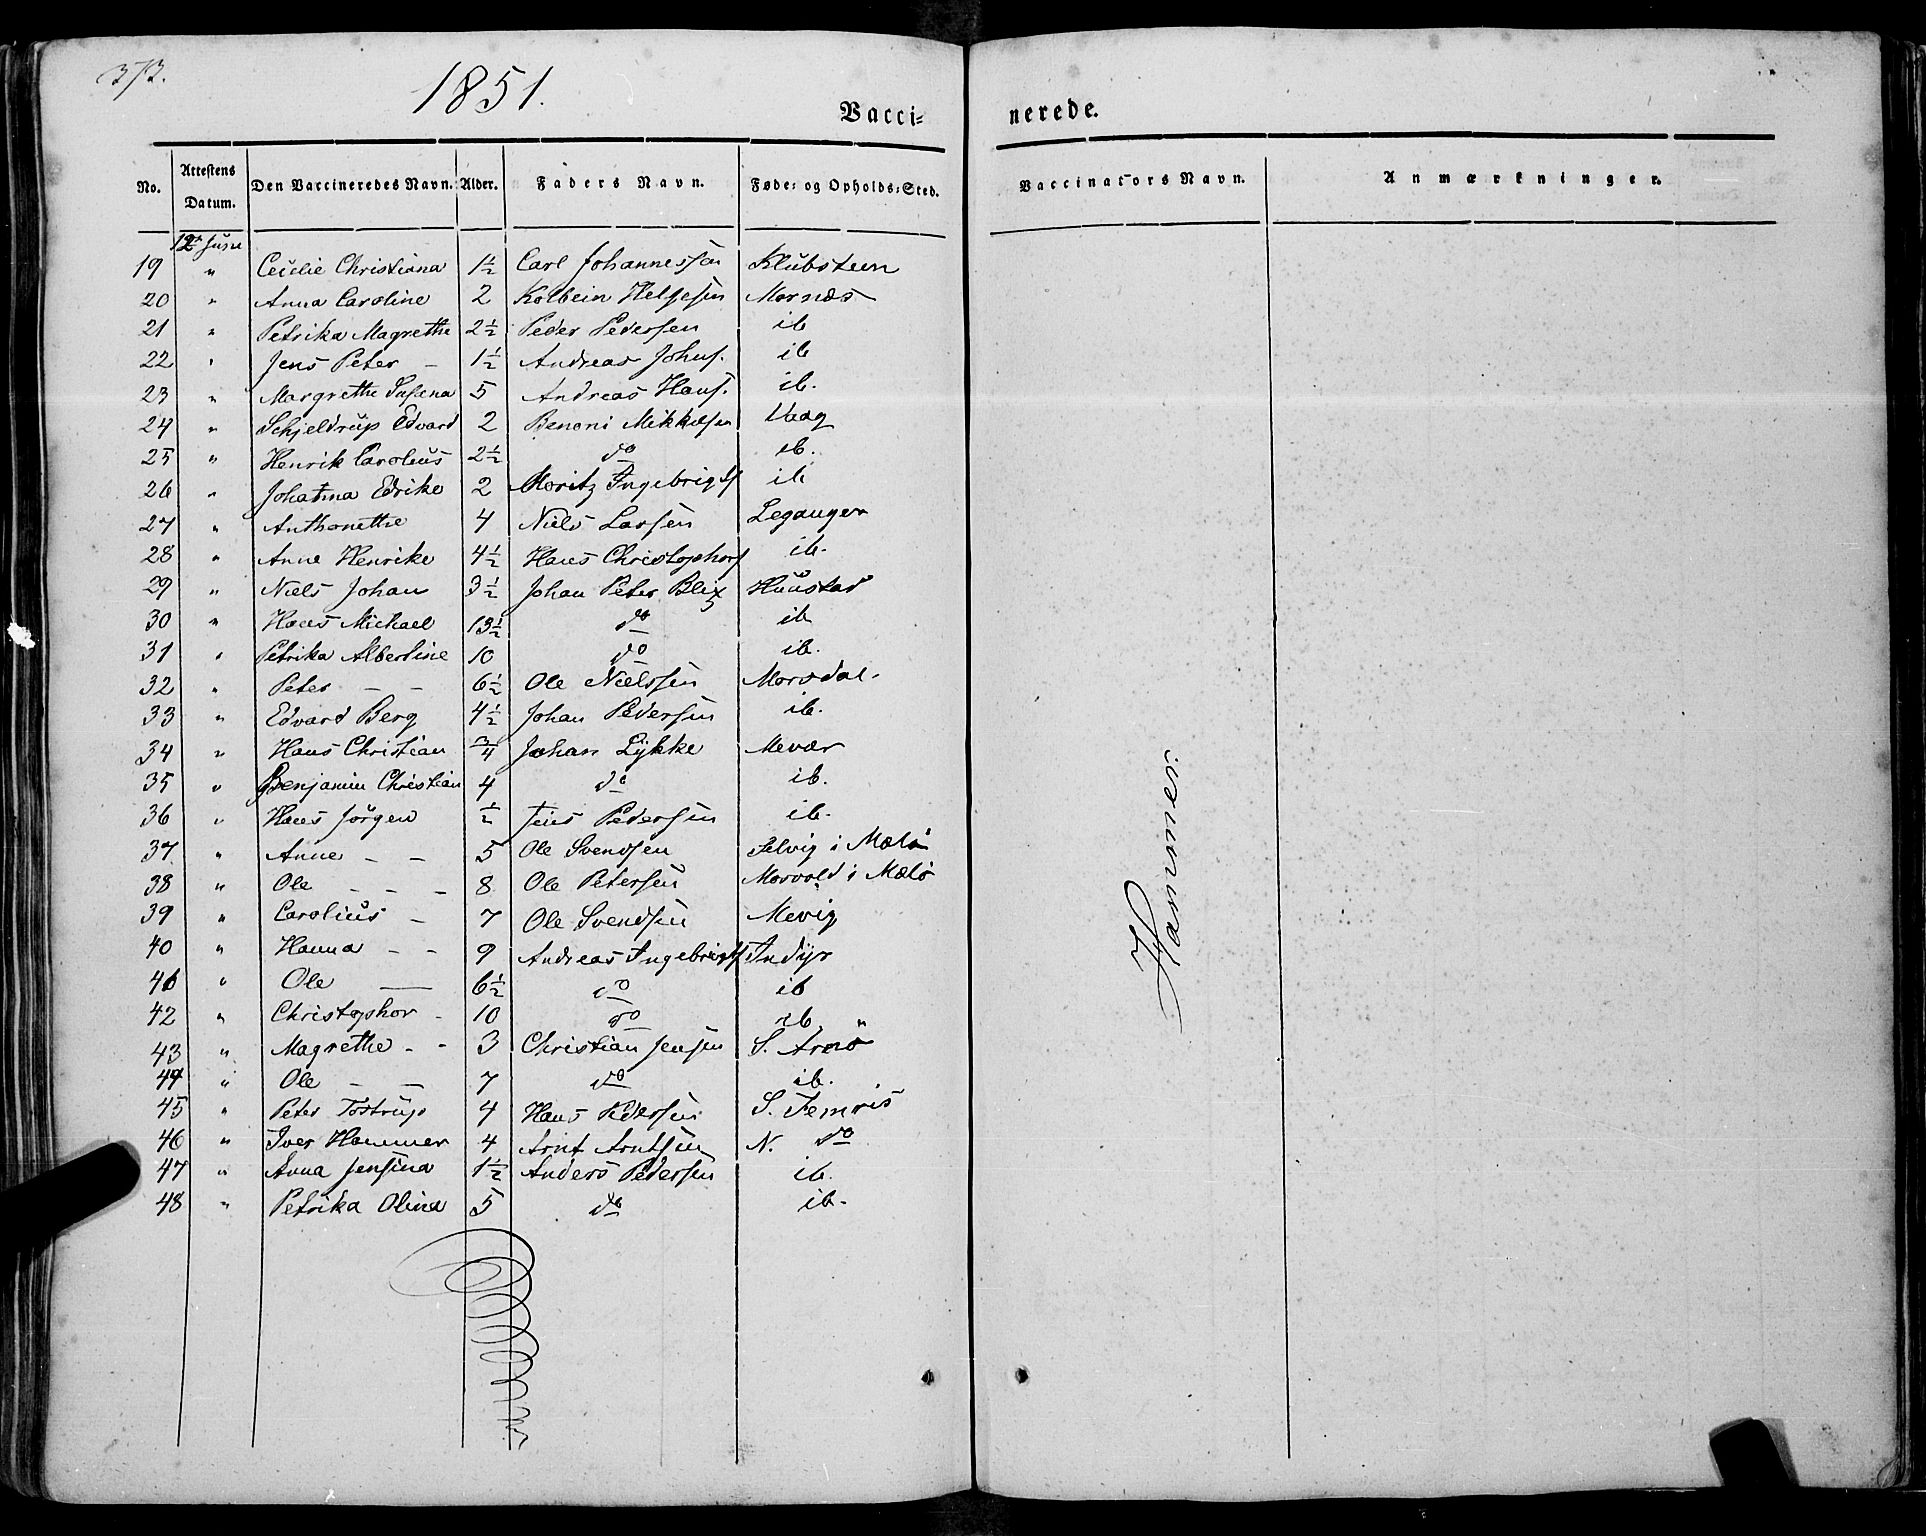 373.
1851.
Vacci= nerede.
No. Attestens Datum. Den Vaccineredes Navn. Alder. Faders Navn. Føde= og Opholds=Sted. Vaccinators Navn. Anmærkninger.
12 Juni
19 " Cecilie Christiana 1½ Carl Johannessen Klubsteen
20 " Anna Caroline 2 Kolbein Helgesen Mornæs
21 " Petrika Magrethe 2½ Peder Pedersen ib
22 " Jens Peter - 1½ Andreas Johns. ib
23 " Margrethe Susana 5 Andreas Hans. ib.
24 " Schjeldrup Edvard 2 Benoni Mikkelsen Vaag
25 " Henrik Carolius 2½ do ib.
26 " Johanna Edrike 2 Moritz Ingebrigts ib
27 " Anthonethe 4 Niels Larsen Leganger
28 " Anne Henrike 4½ Hans Christophers ib.
29 " Niels Johan 3½ Johan Peter Blix Huustad
30 " Hans Michael 13½ do ib
31 " Petrika Albertine 10 do ib.
32 " Peter - - 6½ Ole Nielssen Morsdal.
33 " Edvard Berg 4½ Johan Pedersen ib.
34 " Hans Christian ¾ Johan Lykke Mevær
35 " Benjamin Christian 4 do ib.
36 " Hans Jörgen ½ Jens Pedersen ib.
37 " Anne - - 5 Ole Svendsen Selvig i Mælø
38 " Ole - - - 8 Ole Petersen Morvold i Mælø
39 " Carolius - 7 Ole Svendsen Mevig
40 " Hanna - - 9 Andreas Ingebrigts Indyr
41 " Ole — 6½ do ib
42 " Christophor - 10 do ib.
43 " Magrethe - - 3 Christian Jensen S. Arnö
44 " Ole - - 7 do ib.
45 " Peter Tostrup 4 Hans Pedersen S. Femris
46 " Iver Hammer 4 Arnt Arntsen N. do
47 " Anna Jensina 1½ Anders Pedersen ib.
48 " Petrika Olina 5 do ib.
Hammer